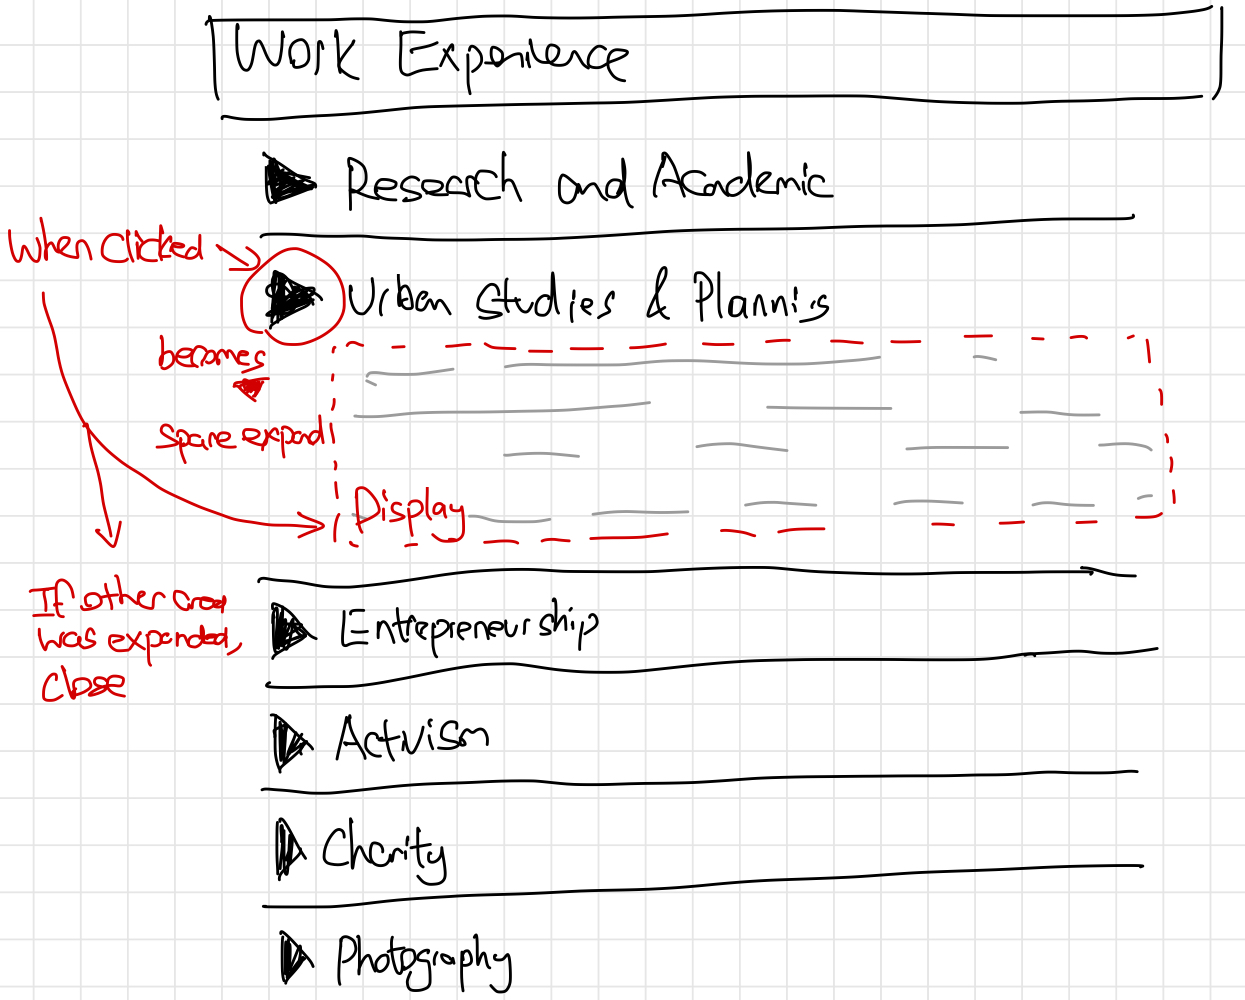 Work Experience
Research and Academic
When Clicked
Urban Studies & Plannig
becomes
Space expand
Display
If other area
was expanded,
close
Entrepreneurship
Activism
Charity
Photography